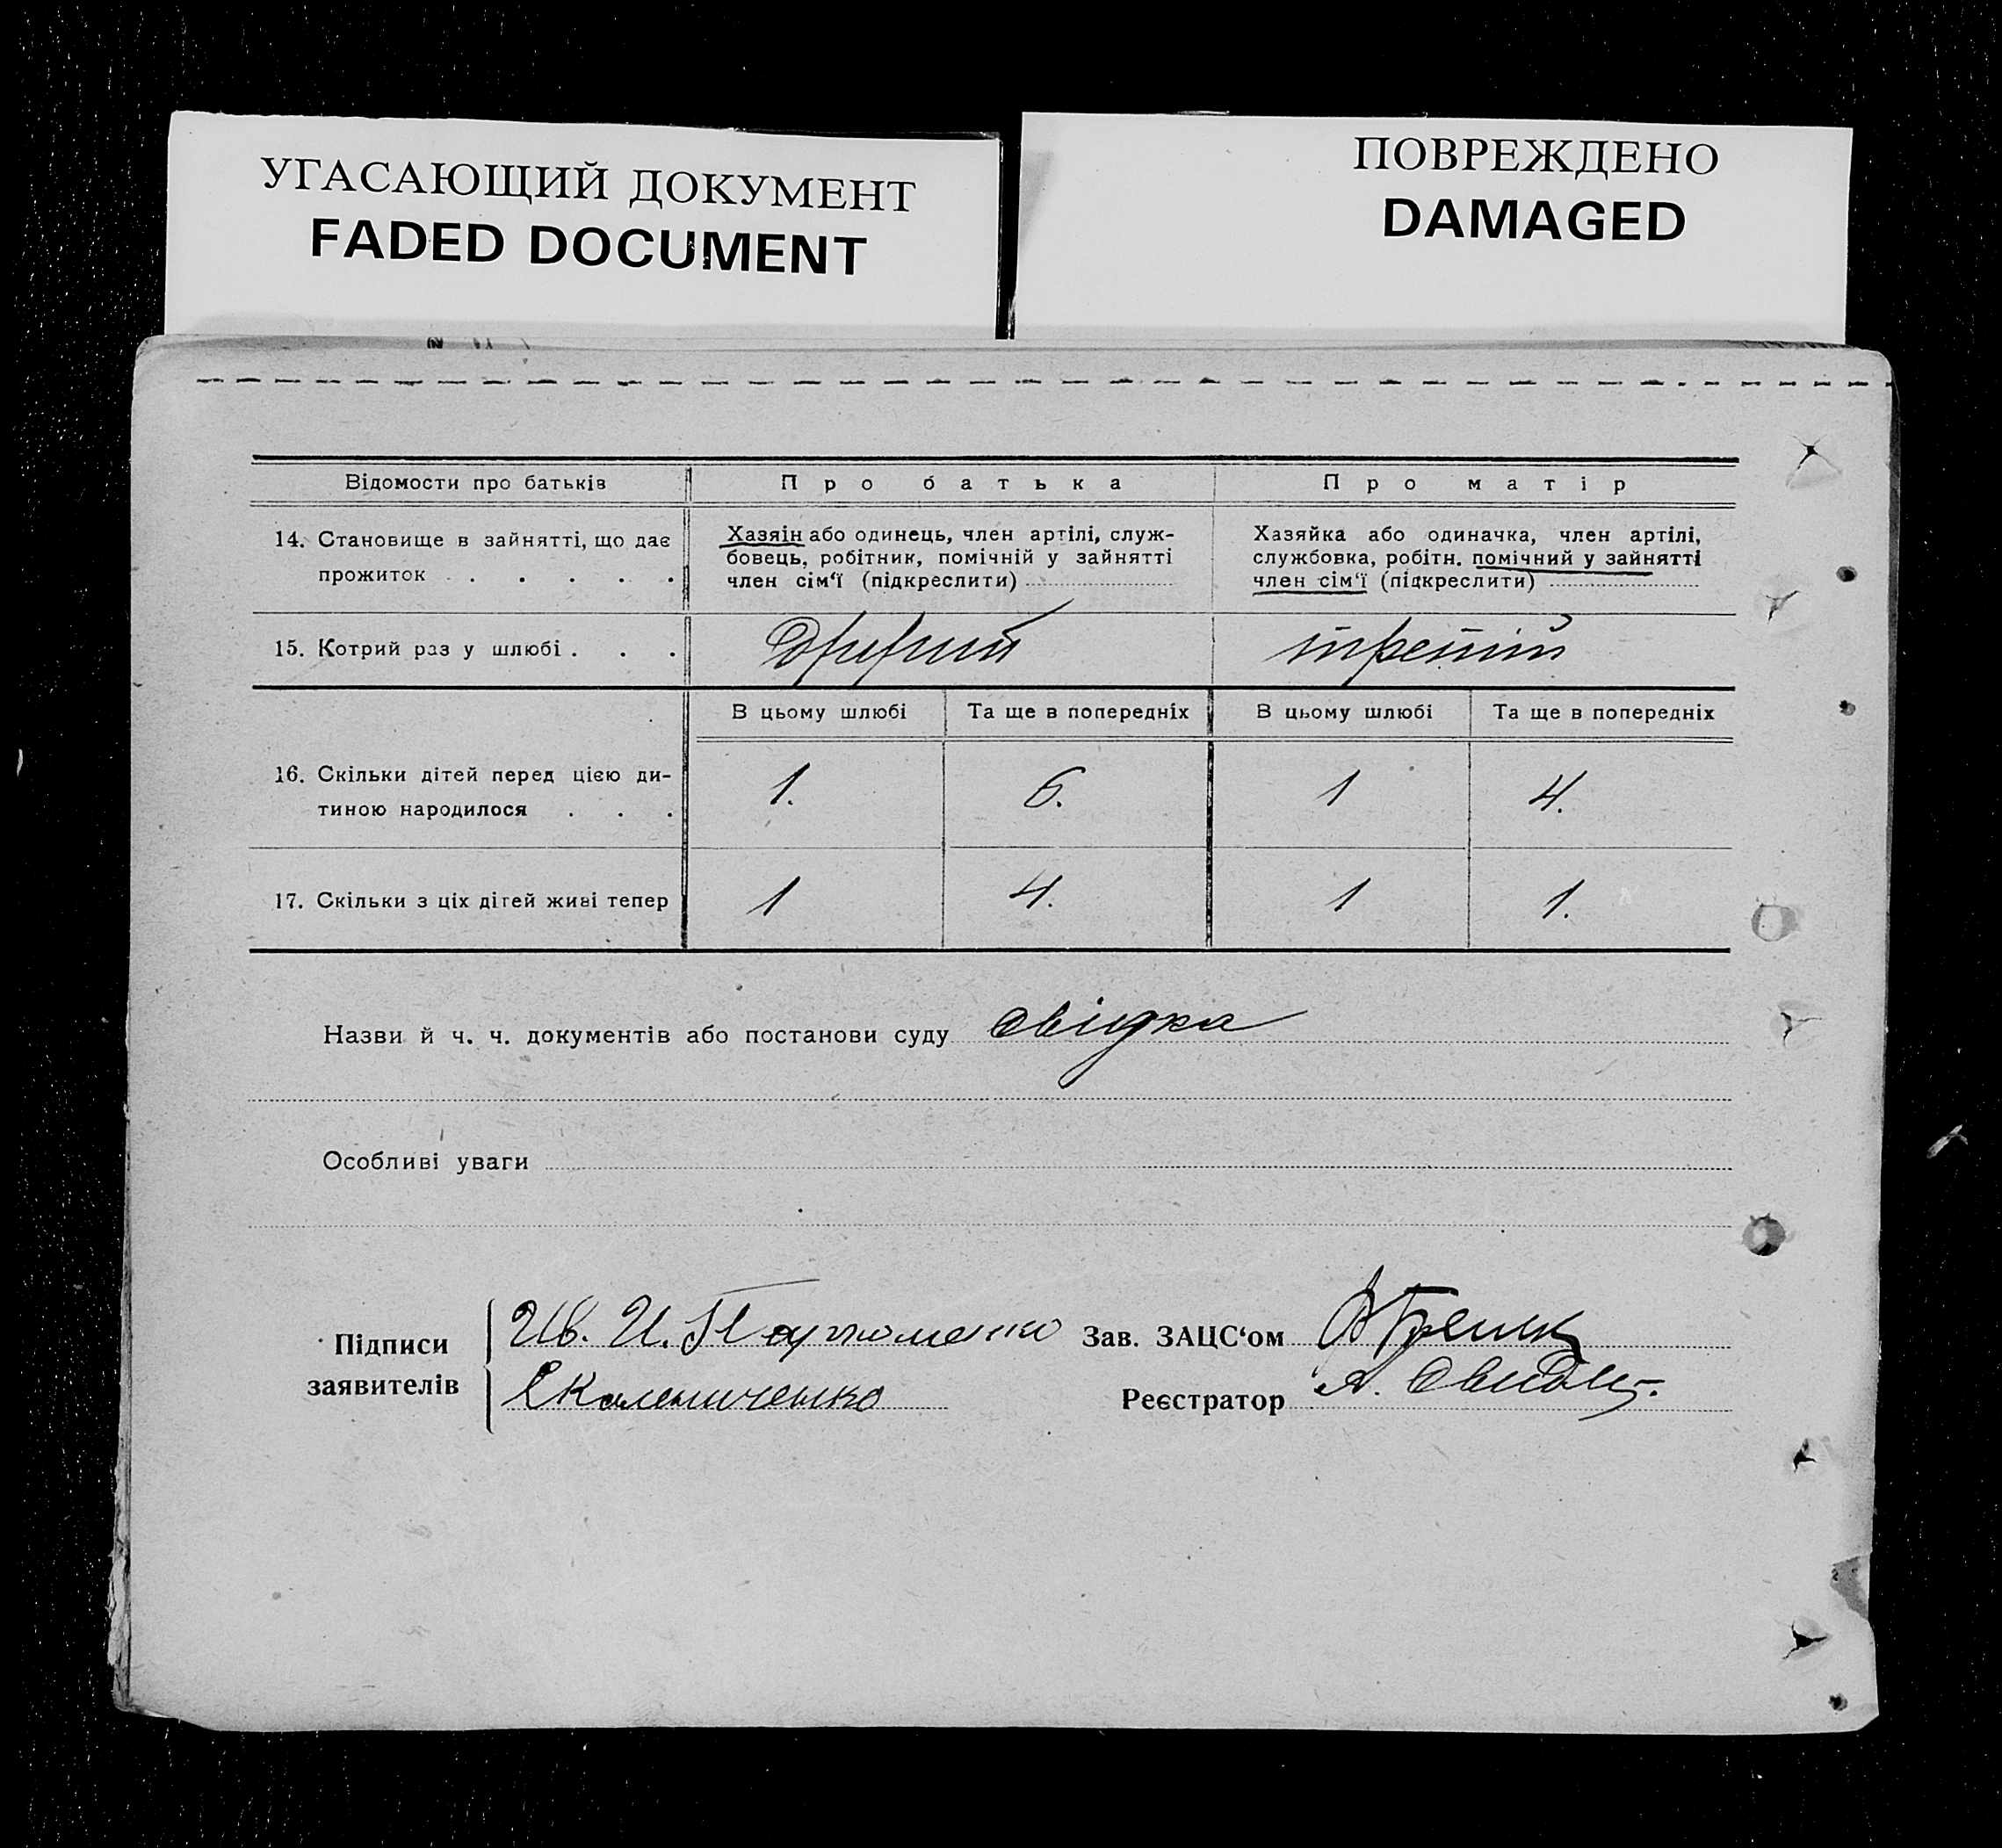 УГАСАЮЩИЙ ДОКУМЕНТ
FADED DOCUMENT
ПОВРЕЖДЕНО
DAMAGED
Відомости про батьків
Про батька
Про матір
14. Становище в зайнятті, що дає
прожиток . . . . . .
Хазяін або одинець, член артілі, служ-
бовець, робітник, помічній у зайнятті
член сім'ї (підкреслити)
Хазяйка або одиначка, член артілі,
службовка, робітн. помічний у зайнятті
член сім'ї (підкреслити)
15. Котрий раз у шлюбі . . .
другий
третій
В цьому шлюбі
Та ще в попередніх
В цьому шлюбі
Та ще в попередніх
16. Скільки дітей перед цією ди-
тиною народилося . . .
1.
6.
1
4.
17. Скільки з ціх дітей живі тепер
1
4.
1
1.
Назви й ч. ч. документів або постанови суду свідка
Особливі уваги
Підписи
заявителів
Ив. И. Пархоменко
Калениченко
Зав. ЗАЦС'ом
Реєстратор А.